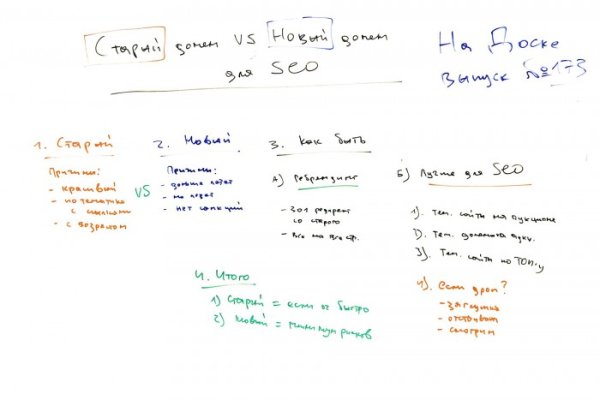 Старый домен VS Новый домен
для SEO
На Доске
выпуск №173
1. Старый
Причины:
- красивый
- по тематике
с ссылками
- с возрастом
VS
2. Новый
Причины:
- дольше
- нет санкций
3. Как быть
А) Ребрендинг
- 301 редирект
со старого
- Все на все стр.
Б) Лучше для SEO
1). Тем. сайты на аукционе
2). Тем. домена аукц.
3). Тем. сайты по ТОП-у
4). Если дроп?
- заглушка
- отстоять
- смотрим
4. Итого
1) Старый = если ог быстро
2) Новый = минимум рисков